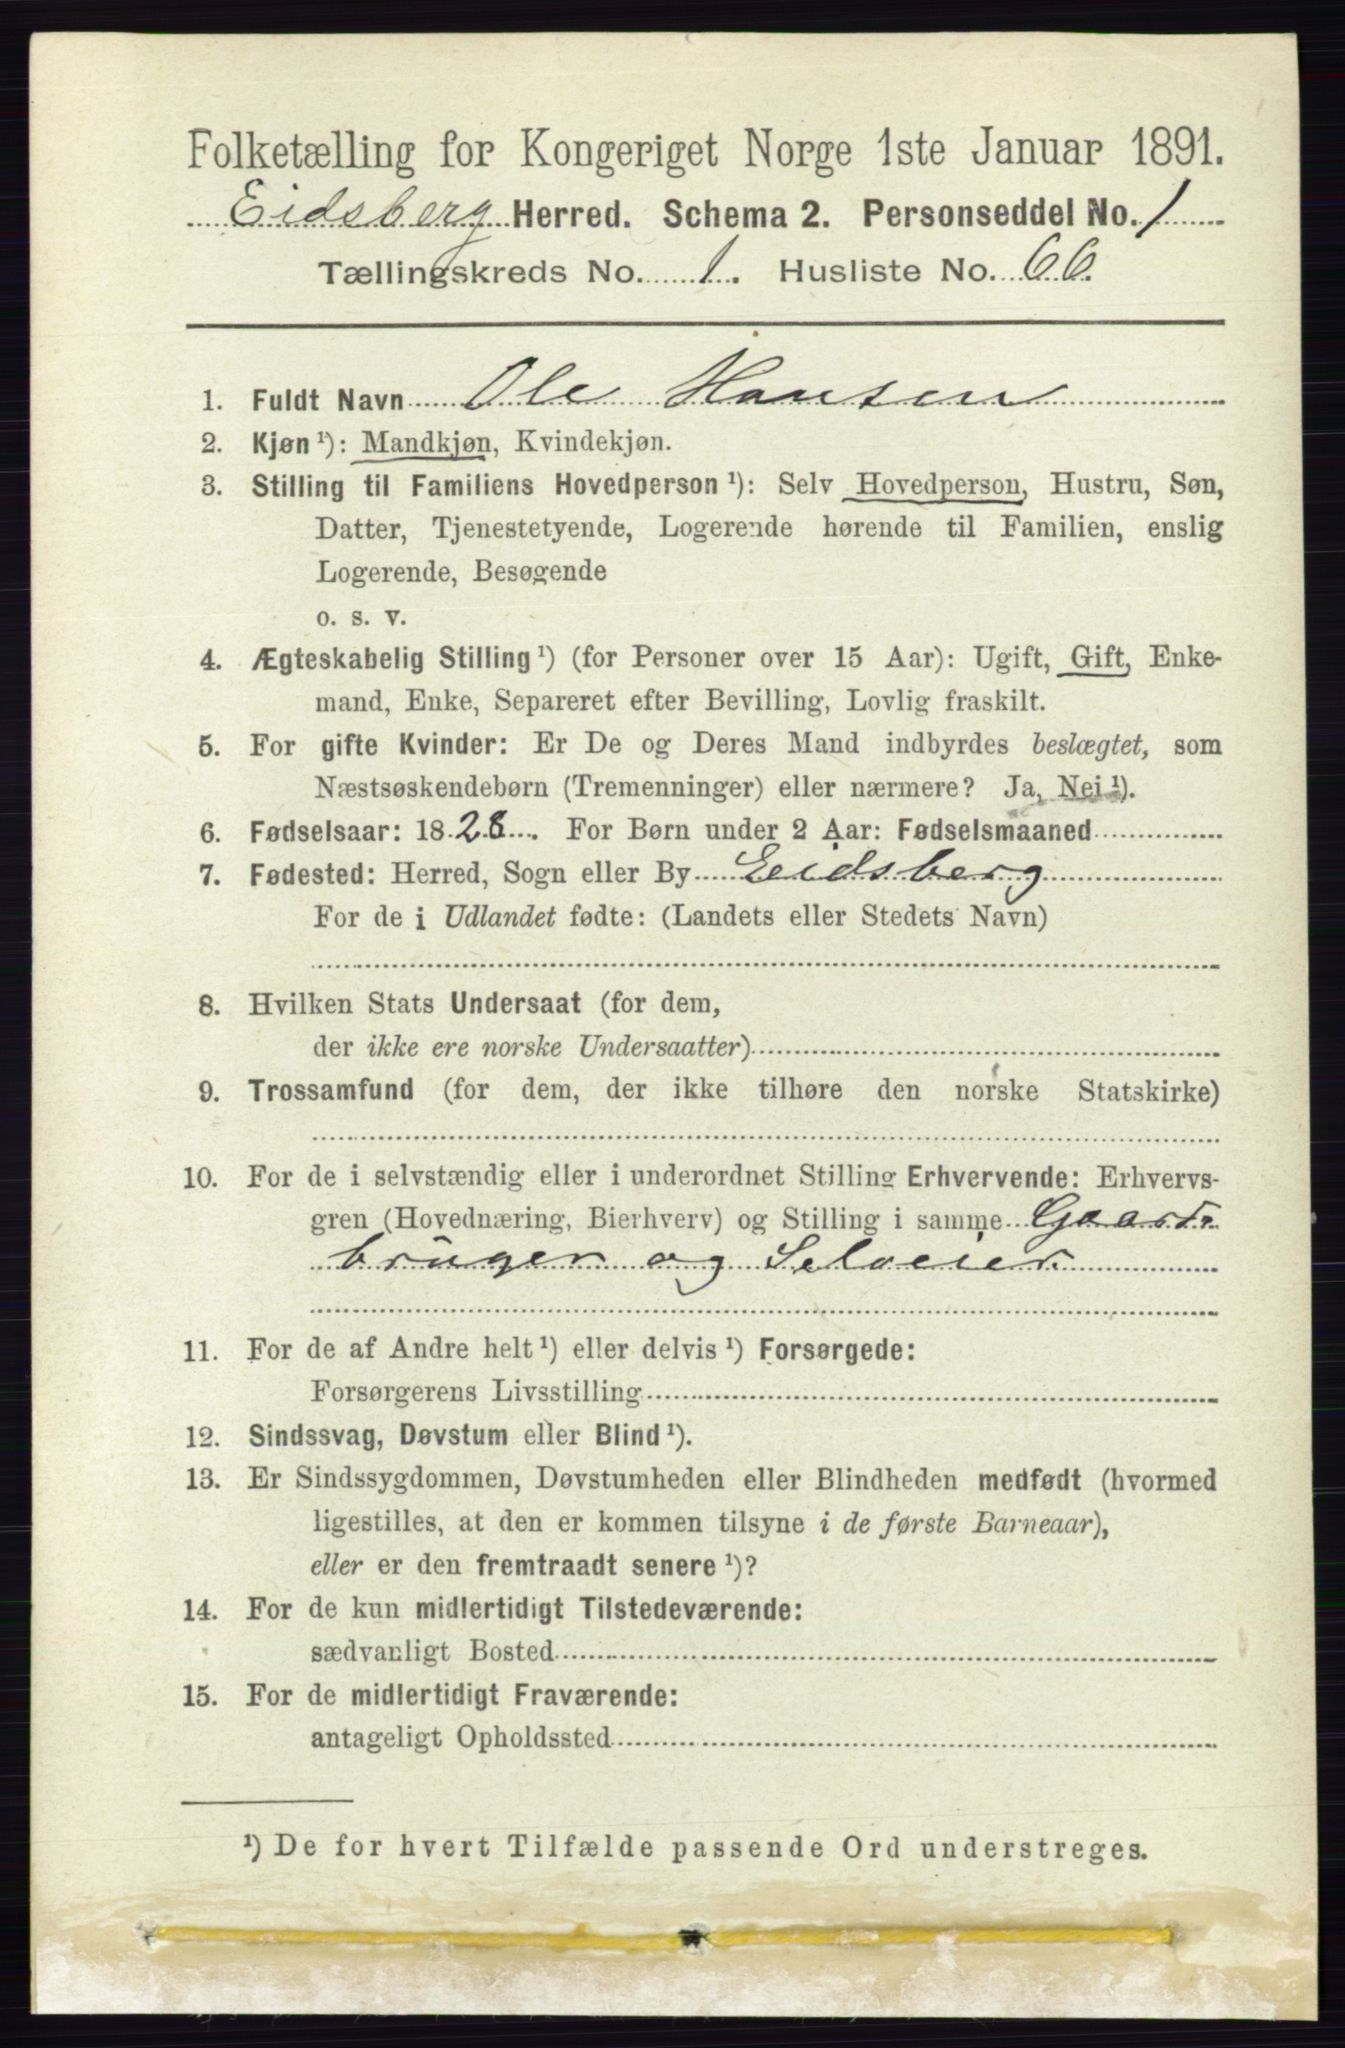 Folketælling for Kongeriget Norge 1ste Januar 1891.
Eidsberg Herred. Schema 2. Personseddel No. 1
Tællingskreds No. 1. Husliste No. 66.
1. Fuldt Navn Ole Hansen
2. Kjøn ¹): Mandkjøn, Kvindekjøn.
3. Stilling til Familiens Hovedperson ¹): Selv Hovedperson, Hustru, Søn,
Datter, Tjenestetyende, Logerende hørende til Familien, enslig
Logerende, Besøgende
o. s. v.
4. Ægteskabelig Stilling ¹) (for Personer over 15 Aar): Ugift, Gift, Enke-
mand, Enke, Separeret efter Bevilling, Lovlig fraskilt.
5. For gifte Kvinder: Er De og Deres Mand indbyrdes beslægtet, som
Næstsøskendebørn (Tremenninger) eller nærmere? Ja, Nei ¹).
6. Fødselsaar: 1828. For Børn under 2 Aar: Fødselsmaaned
7. Fødested: Herred, Sogn eller By Eidsberg
For de i Udlandet fødte: (Landets eller Stedets Navn)
8. Hvilken Stats Undersaat (for dem,
der ikke ere norske Undersaatter)
9. Trossamfund (for dem, der ikke tilhøre den norske Statskirke)
10. For de i selvstændig eller i underordnet Stilling Erhvervende: Erhvervs-
gren (Hovednæring, Bierhverv) og Stilling i samme Gaard-
bruger og Selveier.
11. For de af Andre helt ¹) eller delvis ¹) Forsørgede:
Forsørgerens Livsstilling
12. Sindssvag, Døvstum eller Blind ¹).
13. Er Sindssygdommen, Døvstumheden eller Blindheden medfødt (hvormed
ligestilles, at den er kommen tilsyne i de første Barneaar),
eller er den fremtraadt senere ¹)?
14. For de kun midlertidigt Tilstedeværende:
sædvanligt Bosted
15. For de midlertidigt Fraværende:
antageligt Opholdssted
¹) De for hvert Tilfælde passende Ord understreges.